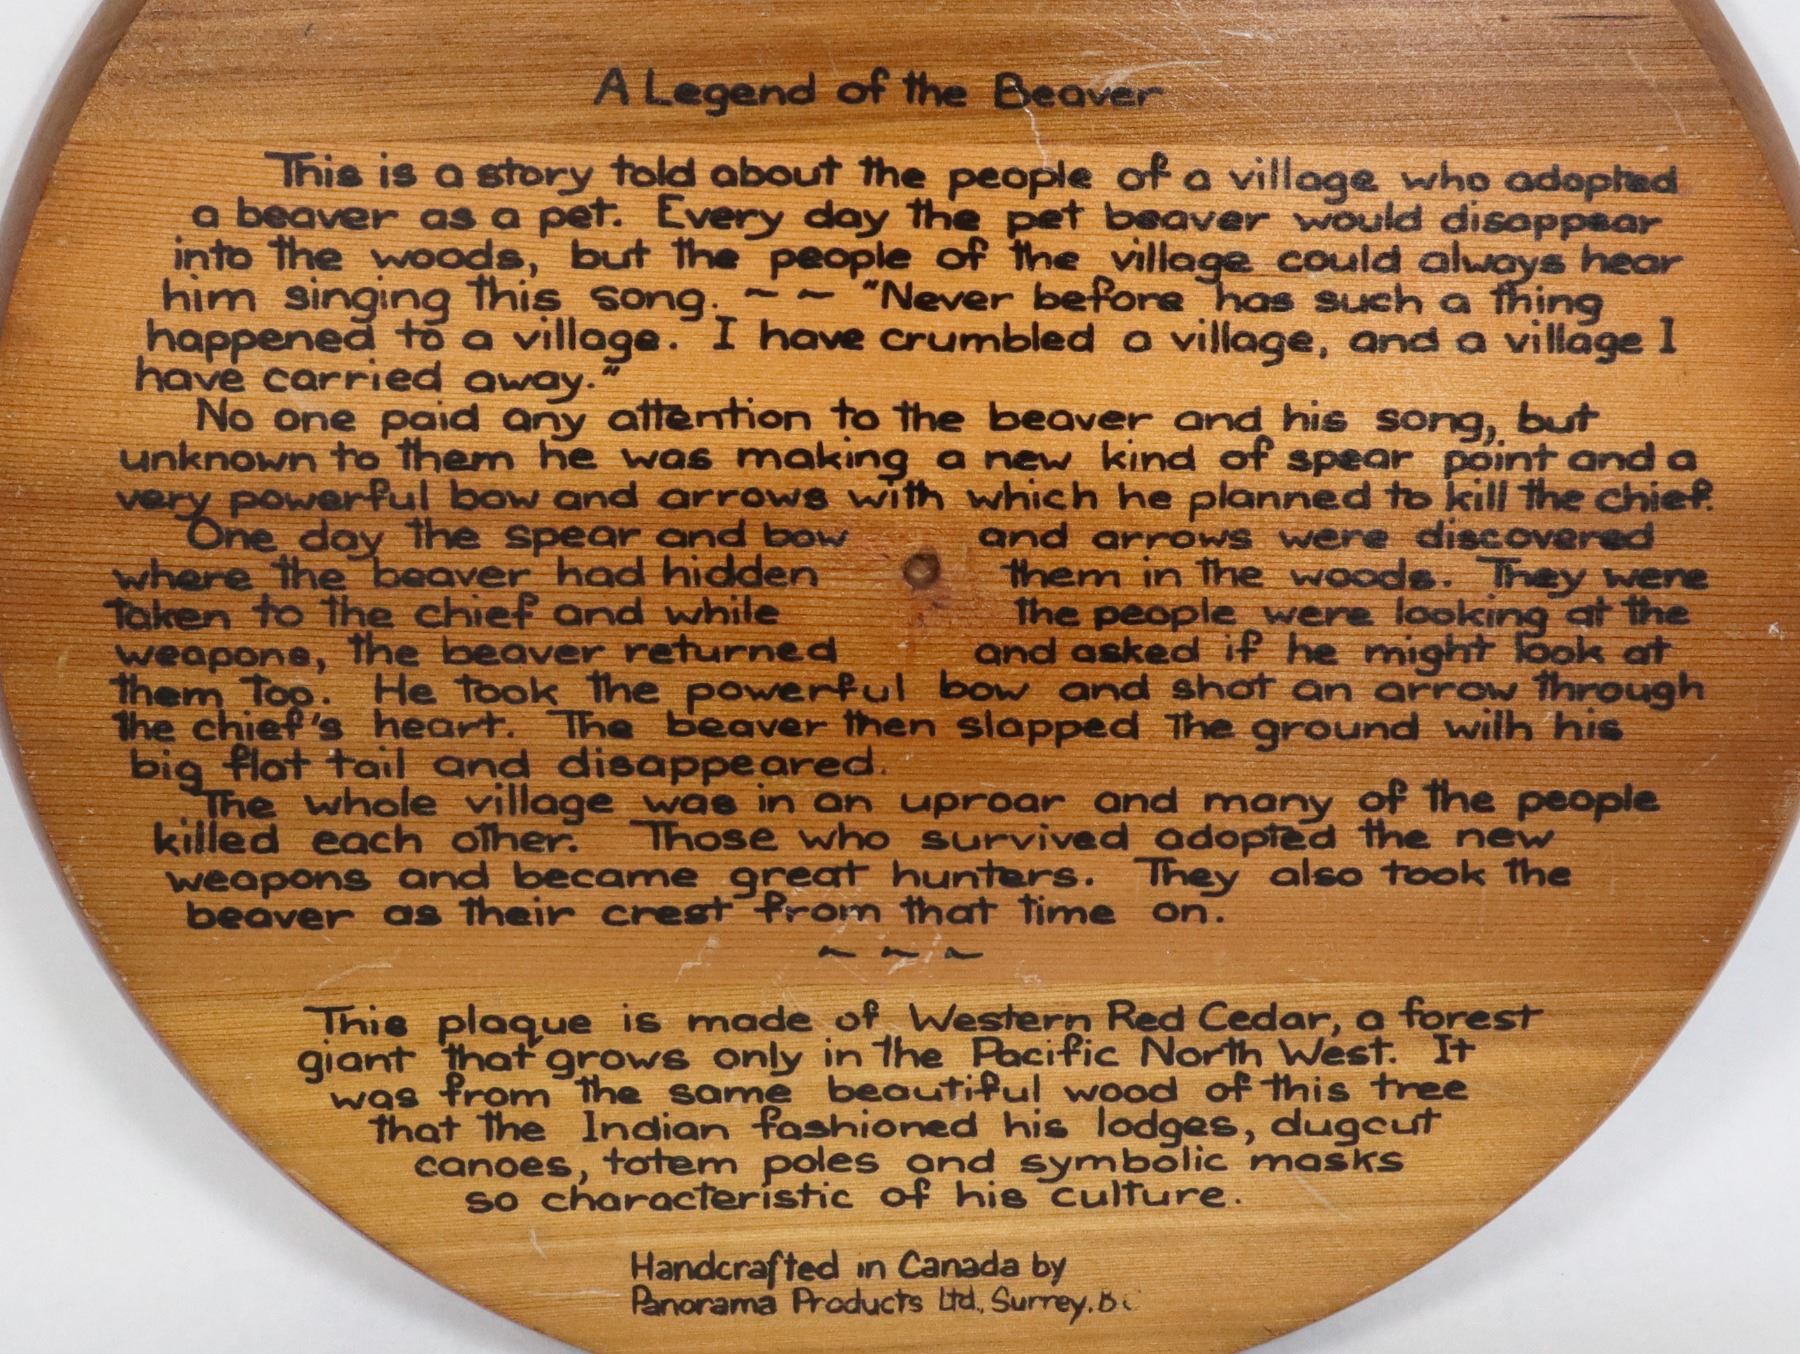 A Legend of the Beaver
This is a story told about the people of a village who adopted
a beaver as a pet. Every day the pet beaver would disappear
into the woods, but the people of the village could always hear
him singing this song. ~ ~ "Never before has such a thing
happened to a village. I have crumbled a village, and a village I
have carried away."
No one paid any attention to the beaver and his song, but
unknown to them he was making a new kind of spear point and a
very powerful bow and arrows with which he planned to kill the chief.
One day the spear and bow and arrows were discovered
where the beaver had hidden them in the woods. They were
taken to the chief and while the people were looking at the
weapons, the beaver returned and asked if he might look at
them too. He took the powerful bow and shot an arrow through
the chief's heart. The beaver then slapped the ground with his
big flat tail and disappeared.
The whole village was in an uproar and many of the people
killed each other. Those who survived adopted the new
weapons and became great hunters. They also took the
beaver as their crest from that time on.
~ ~ ~
This plaque is made of Western Red Cedar, a forest
giant that grows only in the Pacific North West. It
was from the same beautiful wood of this tree
that the Indian fashioned his lodges, dugout
canoes, totem poles and symbolic masks
so characteristic of his culture.
Handcrafted in Canada by
Panorama Products Ltd., Surrey, BC